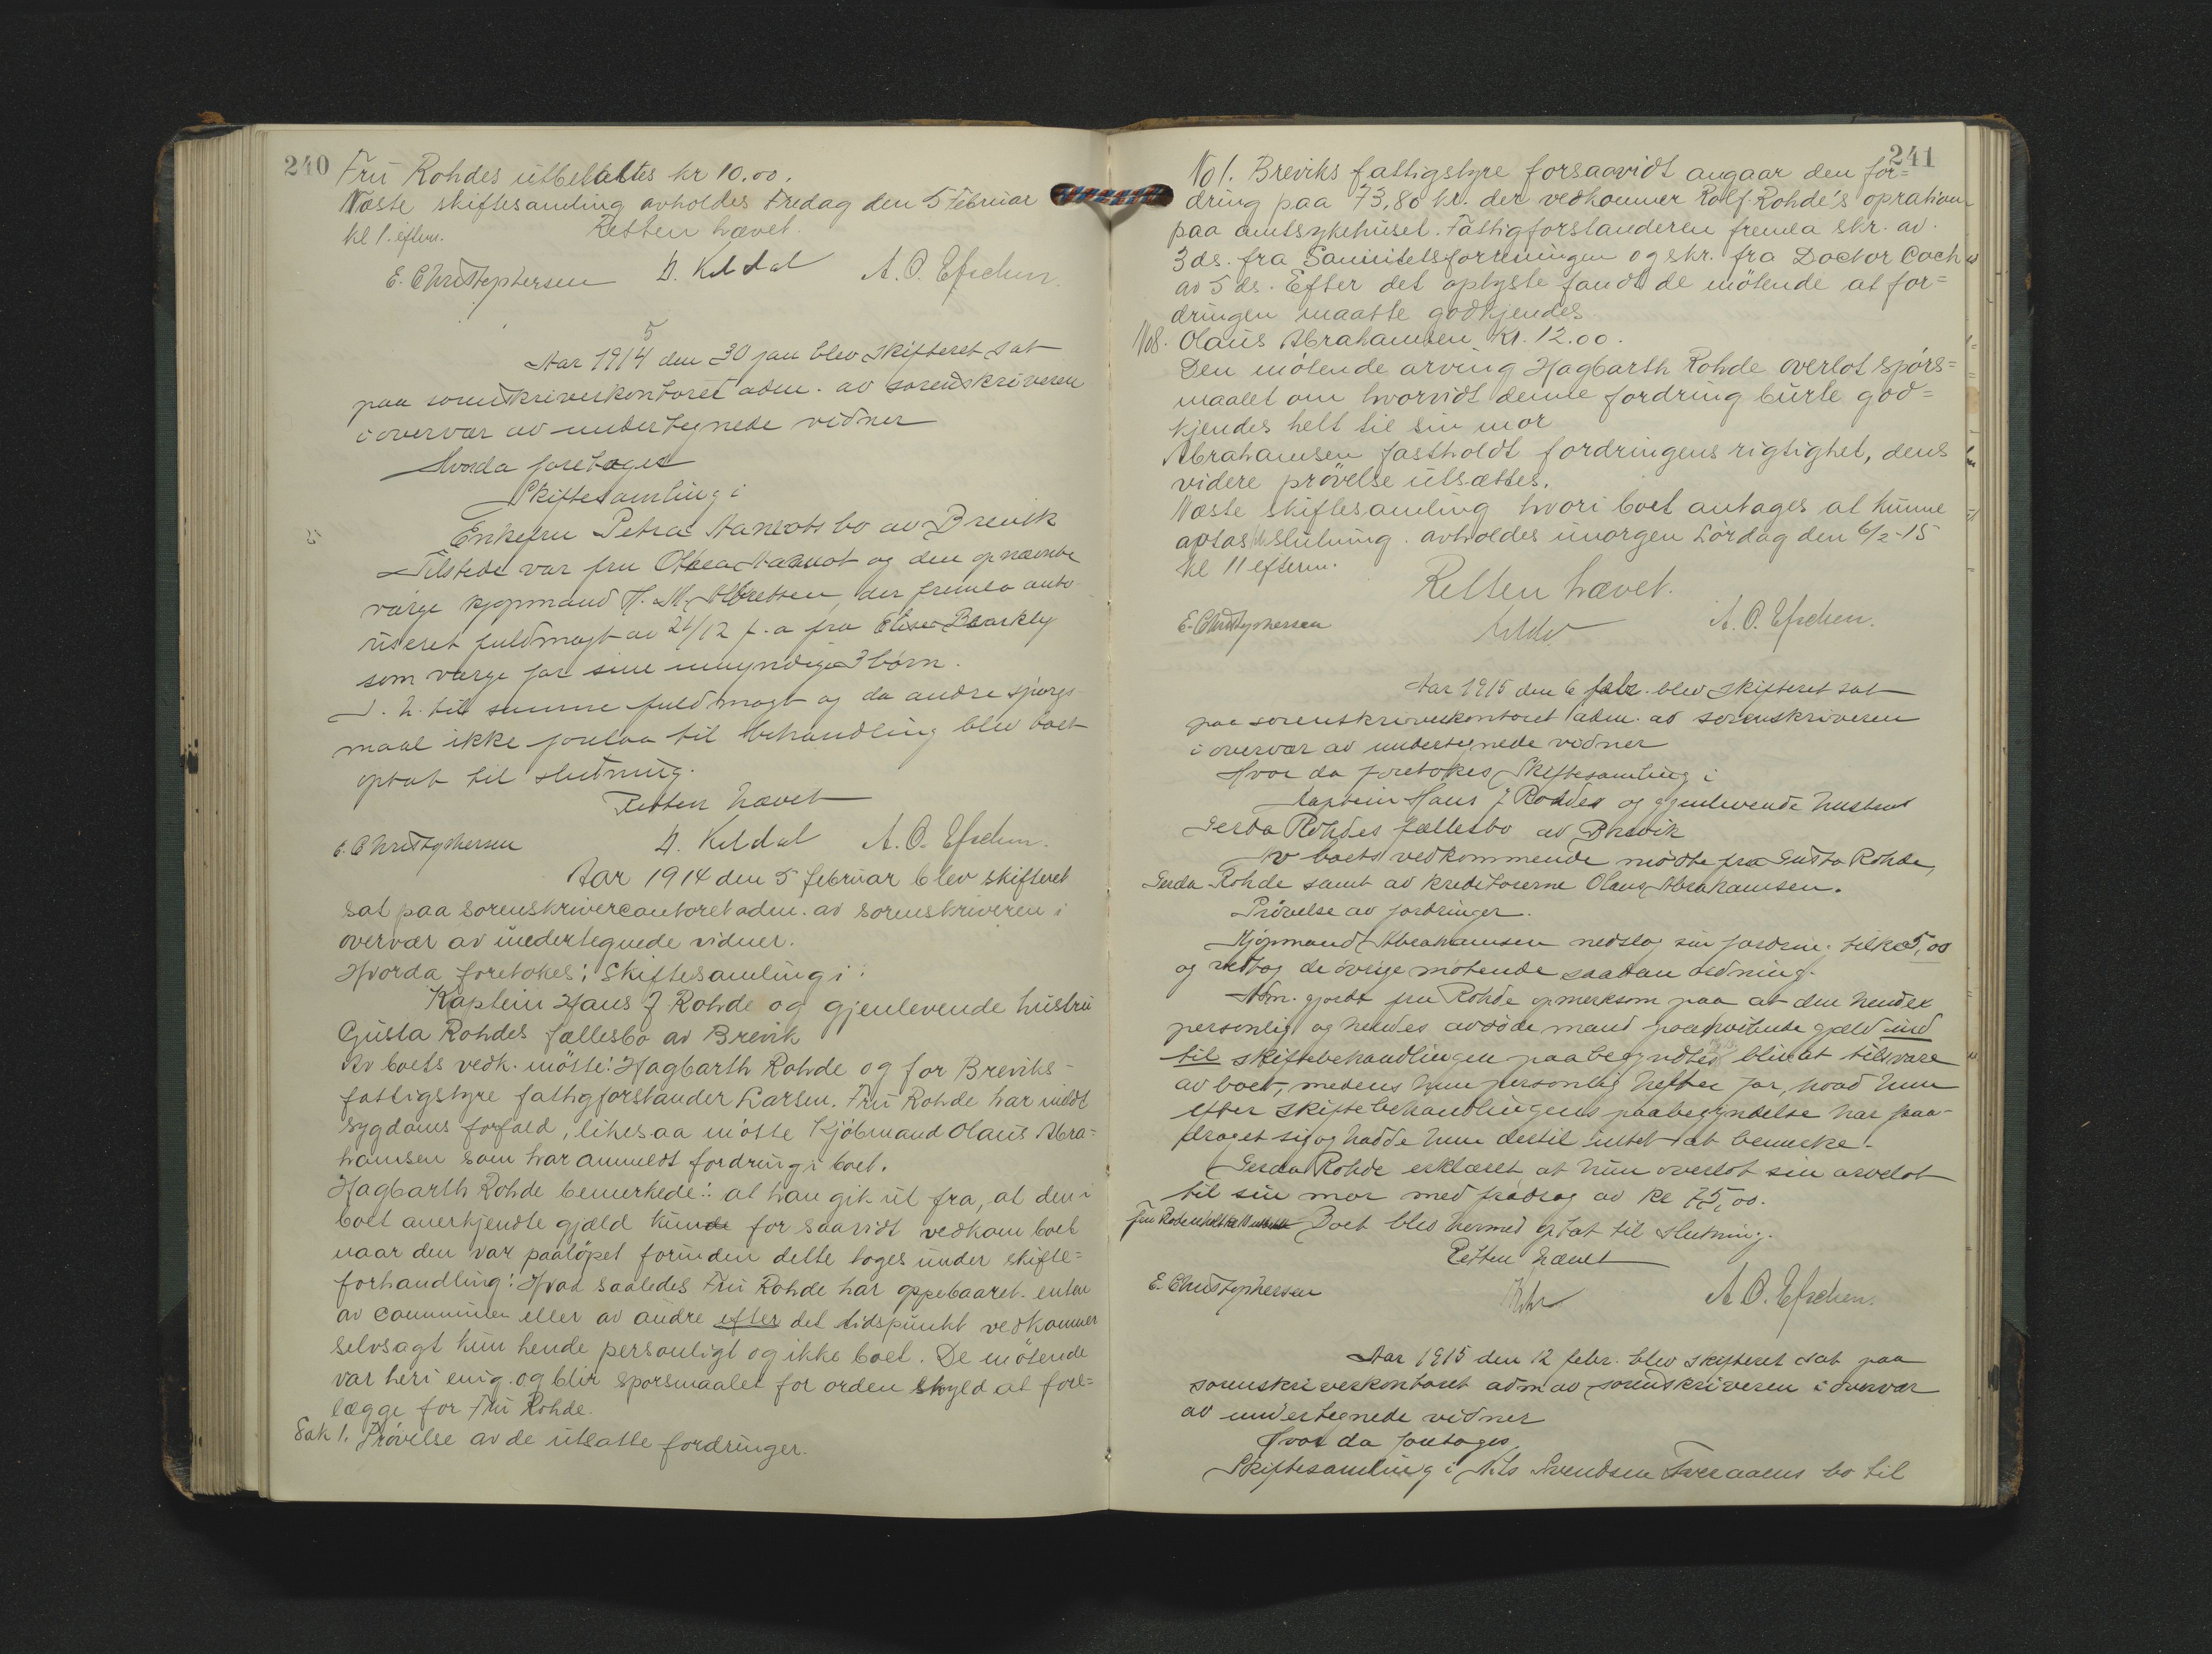 240
Fru Rohdes utbetaltes kr 10.00.
Næste skiftesamling avholdes Fredag den 5 Februar
kl 1. efterm. Retten hævet.
E. Christophersen D. Keldal A. O. Efschen.
5
Aar 1914 den 30 jan blev skifteret sat
paa sorenskriverkontoret adm. av sorenskriveren
i overvær av undertegnede vidner
Hvorda foretoges
Skiftesamling i
Enkefru Petra Aanrots bo av Brevik
Tilstede var fru Othea Aanrot og den opnævnte
værge kjøpmand H. M. Albretsen, der fremla auto-
riseret fuldmagt av 21/12 f. a fra Elise Barkly
som værge for sine umyndige 3 børn.
I. h. til samme fuldmagt og da andre spørgs-
maal ikke forelaa til behandling blev boet
optat til slutning.
Retten hævet
E. Christophersen D. Keldal A. O. Efschen.
Aar 1914 den 5 februar blev skifteret
sat paa sorenskrivercontoret adm. av sorenskriveren i
overvær av undertegnede vidner.
Hvorda foretokes: Skiftesamling i:
Kaptein Hans J Rohde og gjenlevende hustru
Gusta Rohdes fællesbo av Brevik
Av boets vedk. mötte: Hagbarth Rohde og for Breviks-
fattigstyre fattigforstander Larsen. Fru Rohde har meldt
sygdoms forfald, likesaa mötte Kjöbmand Olaus Abra=
hamsen som har anmeldt fordring i boet.
Hagbarth Rohde bemerkede: at han gik ut fra, at den i
boet anerkjendte gjæld kunde for saavidt vedkom boet
naar den var paalöpet forinden dette toges under skifte=
forhandling: Hvad saaledes Fru Rohde har oppebaaret enten
av communen eller av andre efter det tidspunkt vedkommer
selvsagt kun hende personligt og ikke boet. De mötende
var heri enig. og blir sporsmaalet for orden skyld at fore=
lægge for Fru Rohde.
Sak 1. Prövelse av de utsatte fordringer.
241
No 1. Breviks fattigstyre forsaavidt angaar den for=
dring paa 73,80 kr. der vedkommer Rolf Rohde's opration
paa amtsykehuset. Fattigforstanderen fremla skr. av
3 ds. fra Sanitetsforeningen og skr. fra Doctor Coch
av 5 ds. Efter det oplyste fandt de mötende at for=
dringen maatte godkjendes
No8. Olaus Abrahamsen Kr. 12.00.
Den mötende arving Hagbarth Rohde overlot spörs=
maalet om hvorvidt denne fordring burte god=
kjendes helt til sin mor
Abrahamsen fastholdt fordringens rigtighet, dens
videre prövelse utsættes.
Næste skiftesamling hvori boet antages at kunne
optas til slutning. avholdes imorgen Lördag den 6/2-15
kl 11 efterm.
Retten hævet.
E. Christophersen A. O. Efschen.
Aar 1915 den 6 febr. blev skifteret sat
paa sorenskriverkontoret adm. av sorenskriveren
i overvær av undertegnede vidner
Hvor da foretokes Skiftesamling i
Kaptein Hans J Rohdes og gjenlevende hustru
Gerda Rohdes fællesbo av Brevik
Av boets vedkommende mødte fru Gusta Rohde,
Gerda Rohde samt av kreditorerne Olaus Abrahamsen.
Prøvelse av fordringer.
Kjøpmand Abrahamsen nedslog sin fordring til kr 5,00
og vedtog de øvrige møtende saadan ordning.
Adm. gjorde fru Rohde opmerksom paa at den hendes
personlig og hendes avdøde mand paahvilende gjæld ind
til skiftebehandlingen paabegyndtes blir at tilsvare
av boet, medens hun personlig hefter for, hvad hun
efter skiftebehandlingens paabegyndelse har paa-
draget sig og hadde hun dertil intet at bemerke.
Gerda Rohde erklæret at hun overlot sin arvelot
til sin mor med fradrag av kr 75,00.
Boet blev hermed optat til slutning.
Retten hævet
E. Christophersen A. O. Efschen.
Aar 1915 den 12 febr. blev skifteret sat paa
sorenskriverkontoret adm av sorenskriveren i overvær
av undertegnede vidner
Hvor da foretoges
Skiftesamling i Nils Svendsen Tveraaens bo til